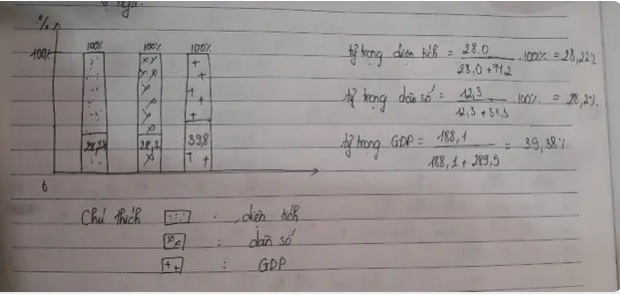 %
100% 100% 100%
100%
28,2% 28,2 39,8
0
tỷ trọng diện tích = 28,0 / 28,0 + 71,2 . 100% = 28,22%
tỷ trọng dân số = 12,3 / 12,3 + 31,3 . 100% = 28,2%
tỷ trọng GDP = 188,1 / 188,1 + 289,5 = 39,38%
Chú thích : diện tích
: dân số
: GDP